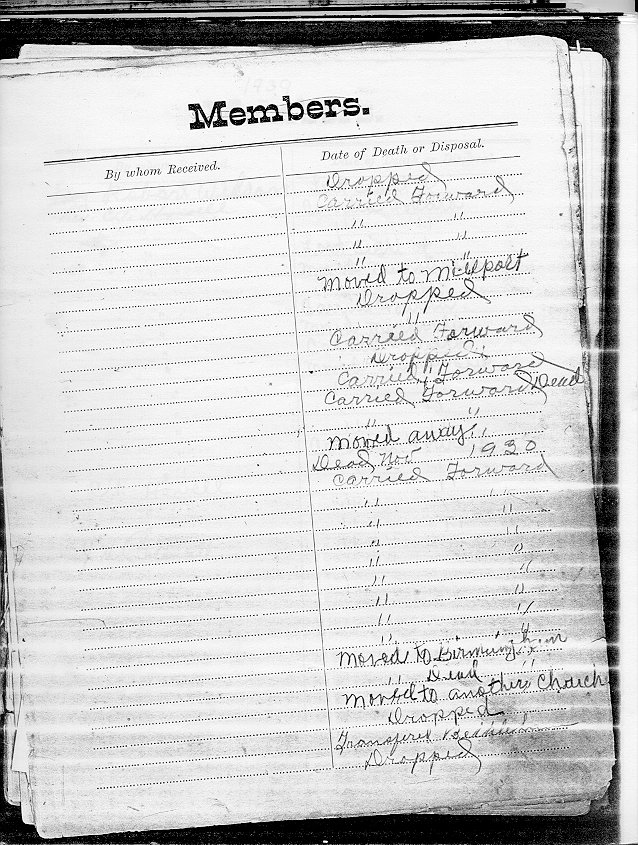 Members.
By whom Received. Date of Death or Disposal.
Dropped
Carried Forward
" "
" "
" "
Moved to Millport
Dropped
"
Carried Forward
Dropped
Carried Forward
Carried Forward Dead
" "
Moved away "
Dead Nov 1930
Carried Forward
" "
" "
" "
" "
" "
" "
" "
" "
Moved to Birmingham
" Dead "
Moved to another Church
Dropped
Transfered
Dropped